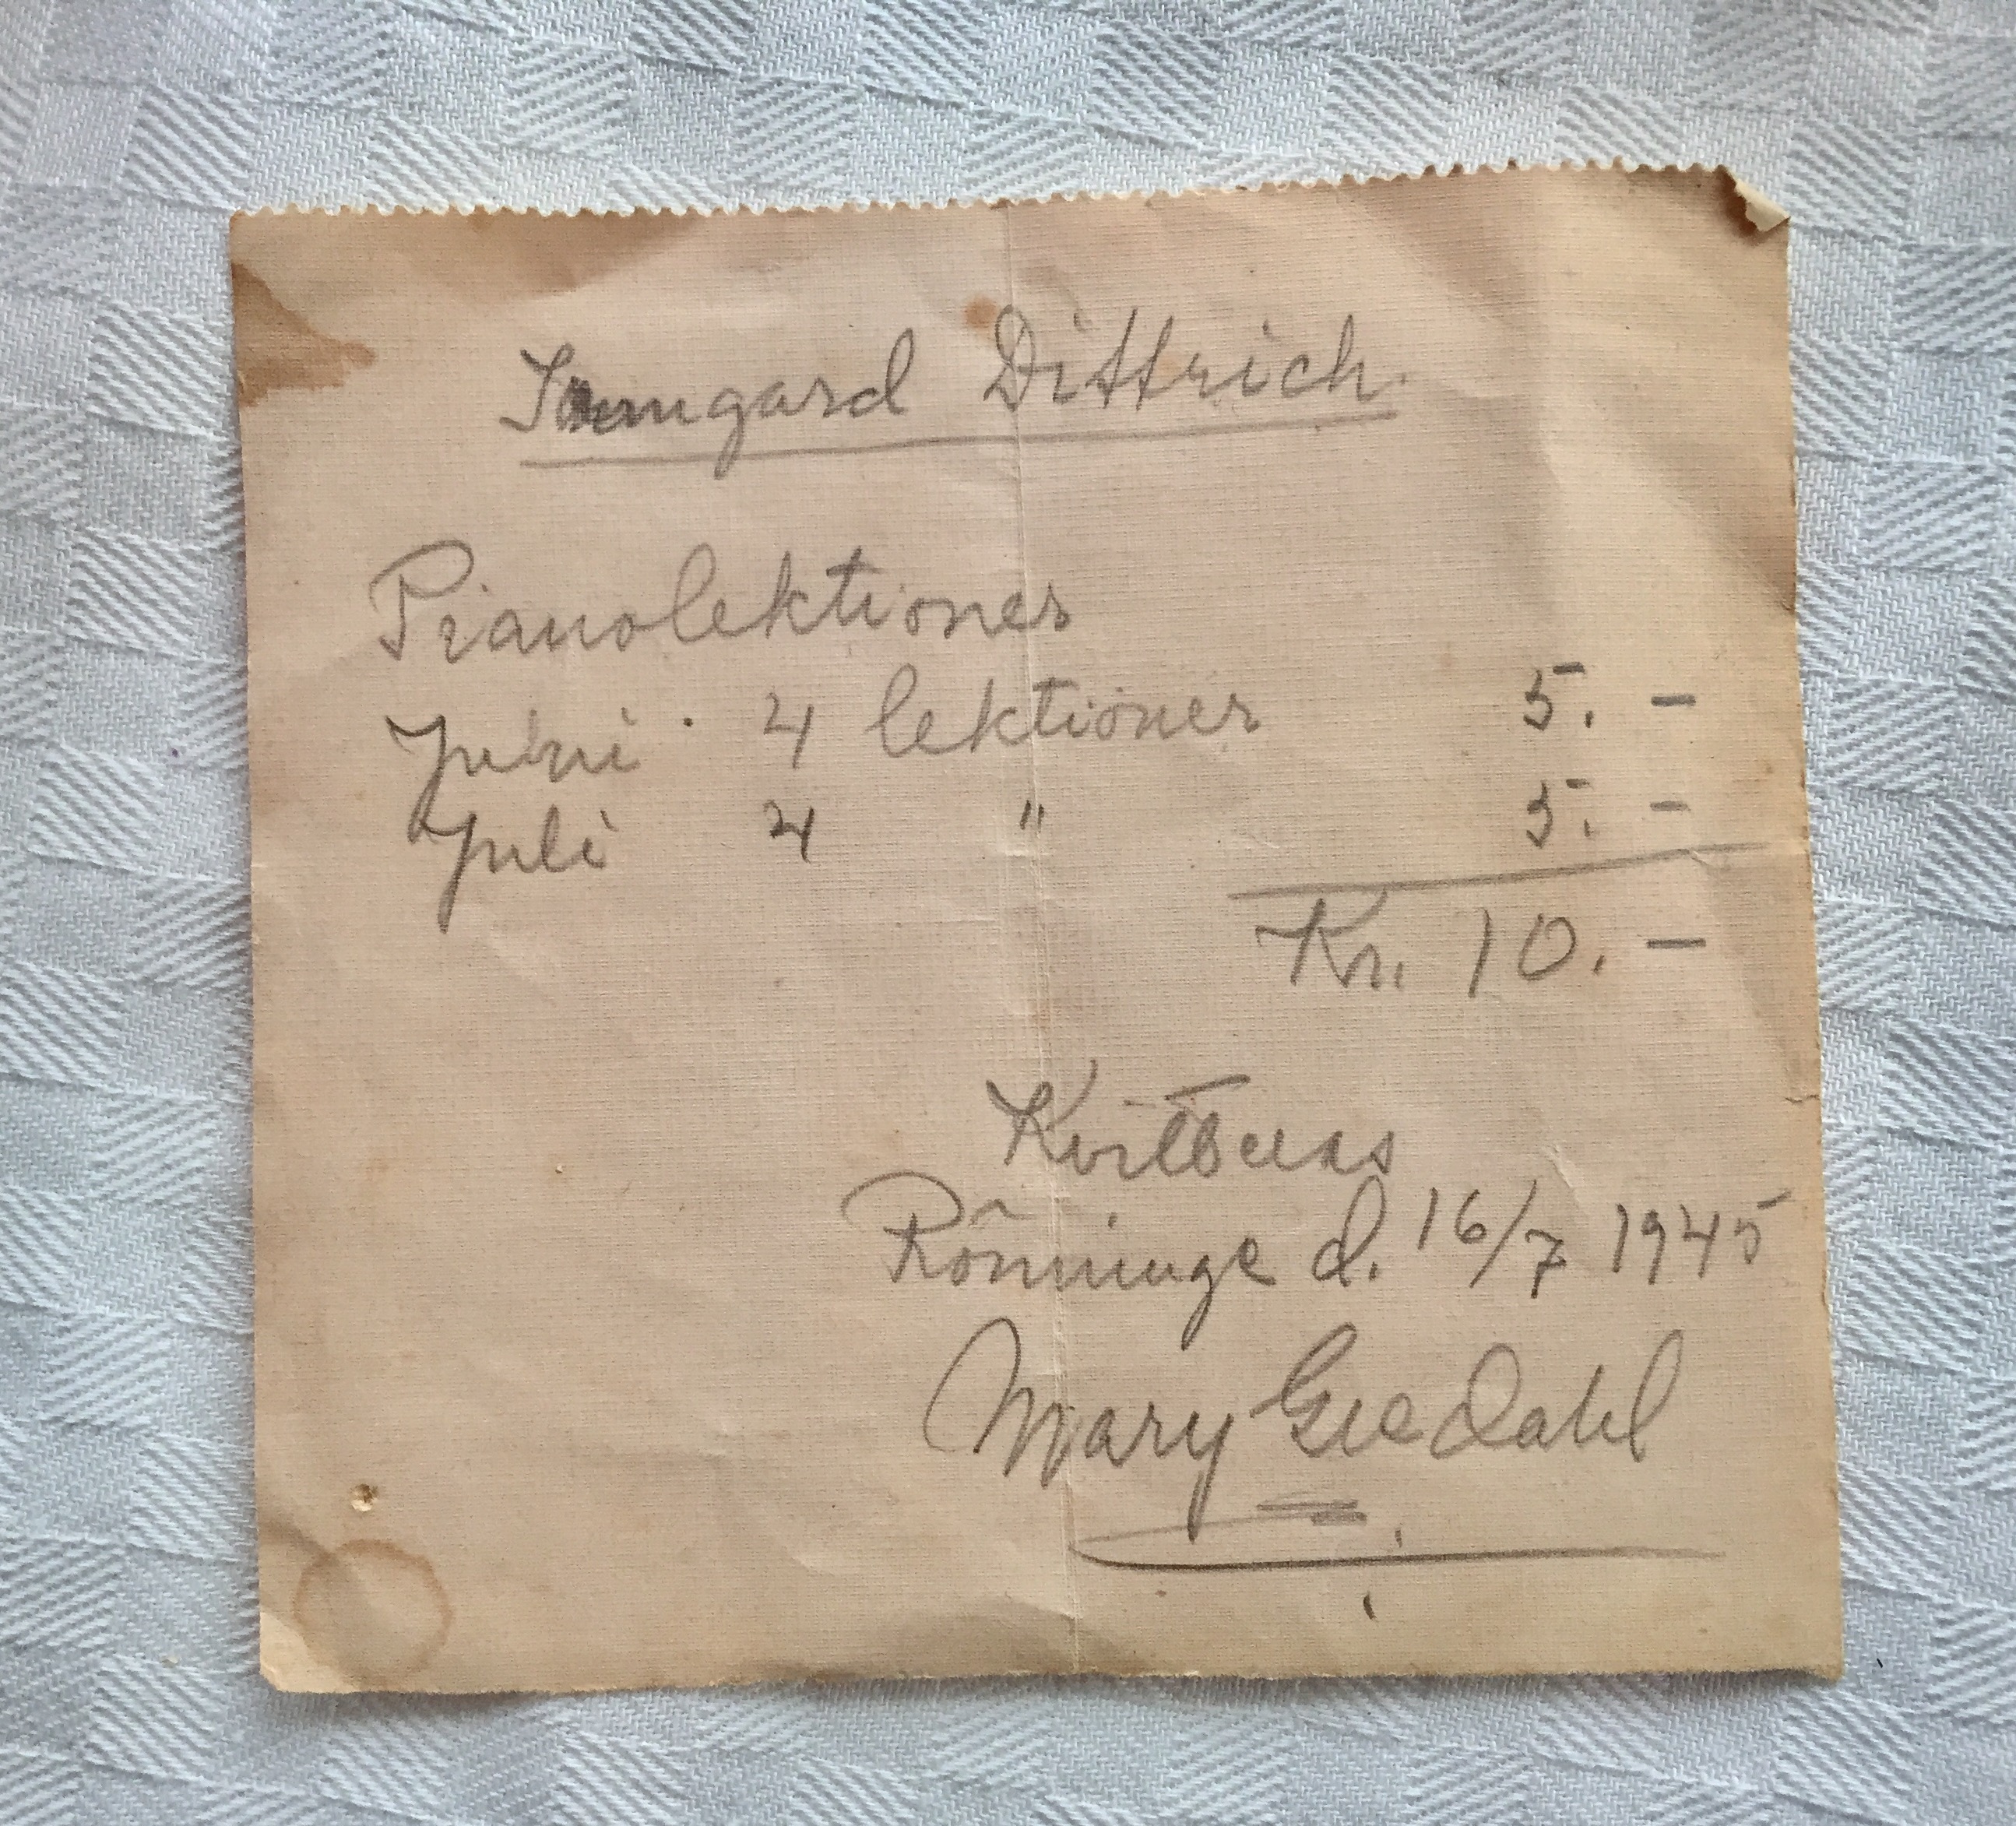 Irmgard Dittrich
Pianolektioner
Juni. 4 lektioner 5. —
Juli 4 " 5. —
Kr. 10. —
Kvitteras
Rönninge d. 16/7 1945
Mary